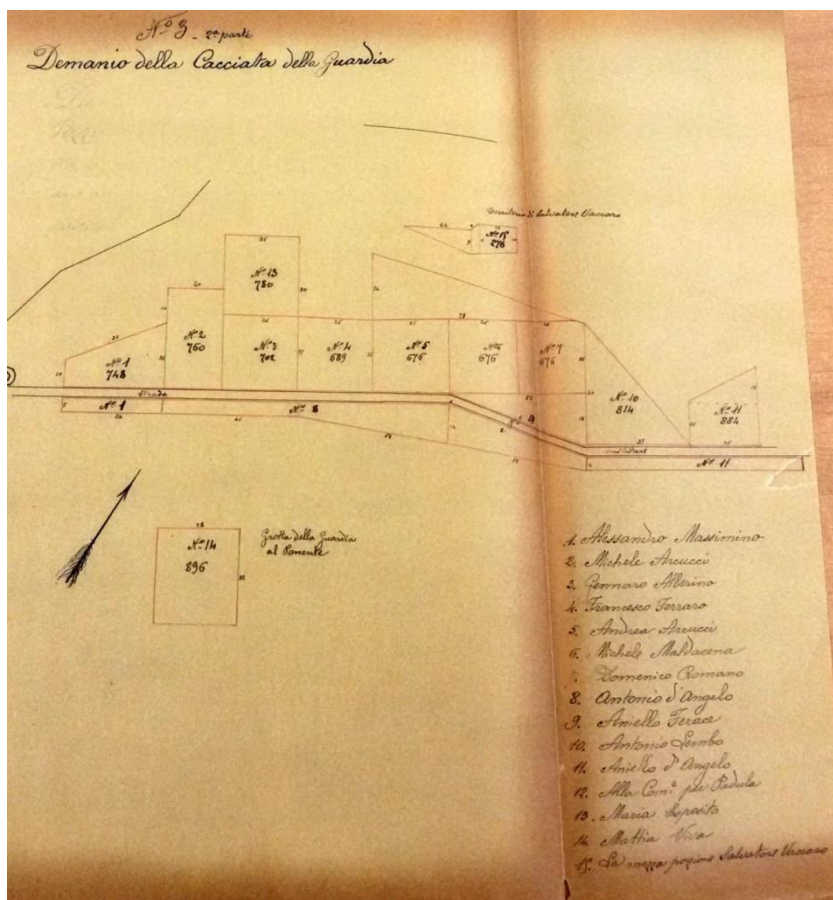 Nº 3 - 2ª parte
Demanio della Cacciata della Guardia
Territorio di Salvatore Vaccaro
Nº 15
276
Nº 13
780
Nº 2
760
Nº 1
748
Nº 3
702
Nº 4
689
Nº 5
676
Nº 6
676
Nº 7
676
Nº 10
814
Nº 11
884
Strada
Nº 1
Nº 8
Nº 9
Nº 11
Nº 14
896
Grotta della Guardia
al Ponente
1. Alessandro Massimino
2. Michele Arcucci
3. Gennaro Alberino
4. Francesco Ferraro
5. Andrea Arcucci
6. Michele Maldacena
7. Domenico Romano
8. Antonio d'Angelo
9. Aniello Ferace
10. Antonio Lembo
11. Aniello d'Angelo
12. Alla Com.e per Padula
13. Maria Esposito
14. Mattia Viva
15. La mezza porzione Salvatore Vaccaro